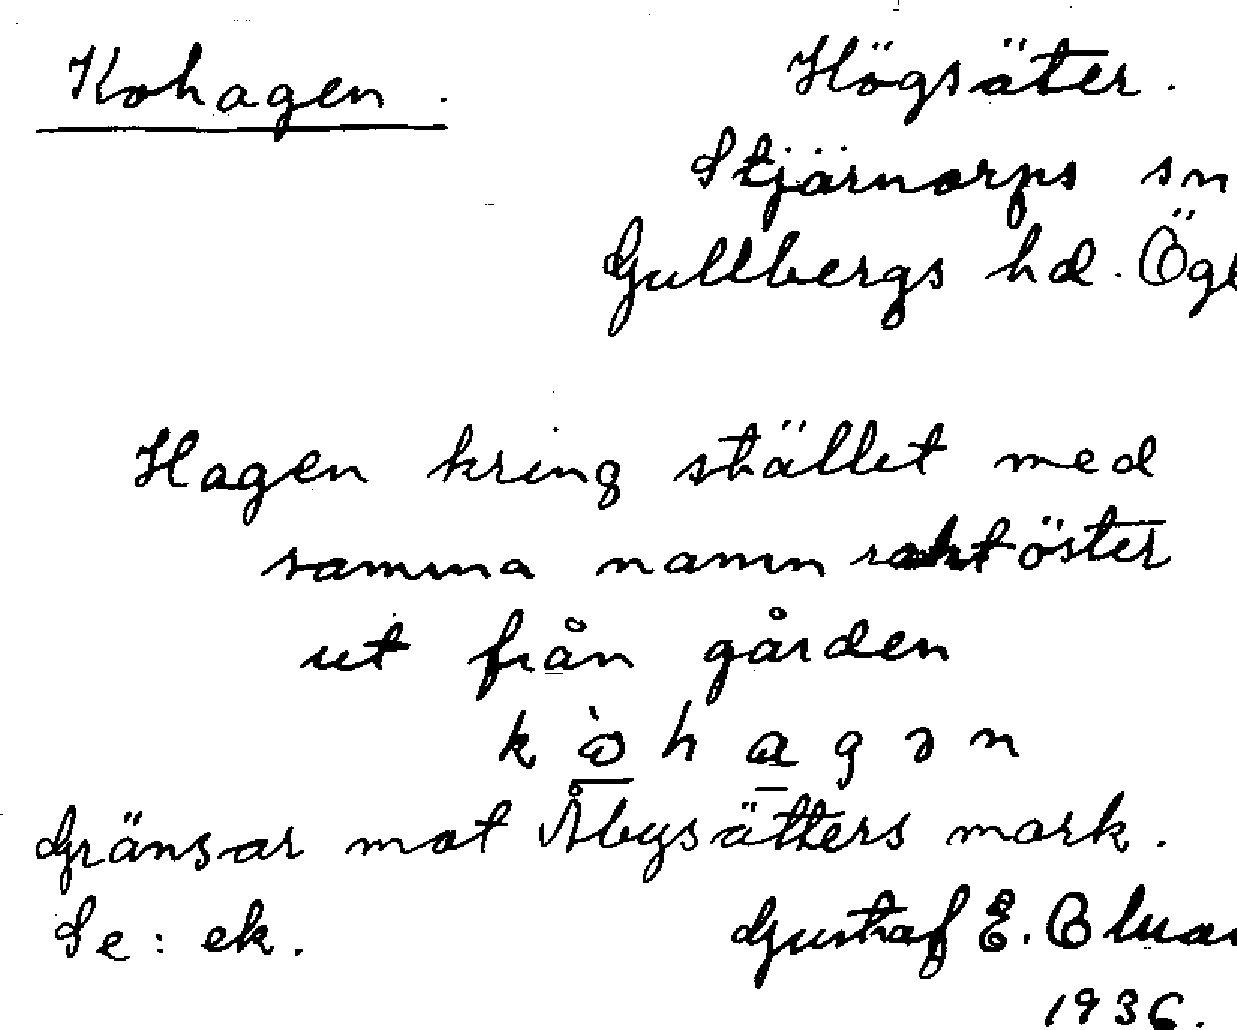 Kohagen.
Högsäter.
Stjärnorps sn
Gullbergs hd. Ögl
Hagen kring stället med
samma namn rakt öster
ut från gården
k ò h a g ə n
Gränsar mot Åbysätters mark.
Se: ek.
Gustaf E.
1936.